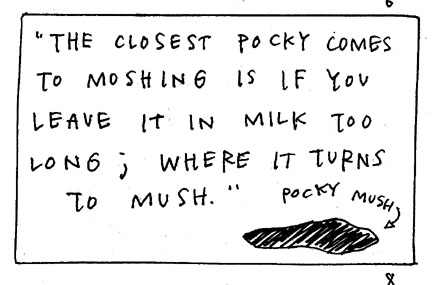 "THE CLOSEST POCKY COMES
TO MOSHING IS IF YOU
LEAVE IT IN MILK TOO
LONG; WHERE IT TURNS
TO MUSH."
POCKY MUSH